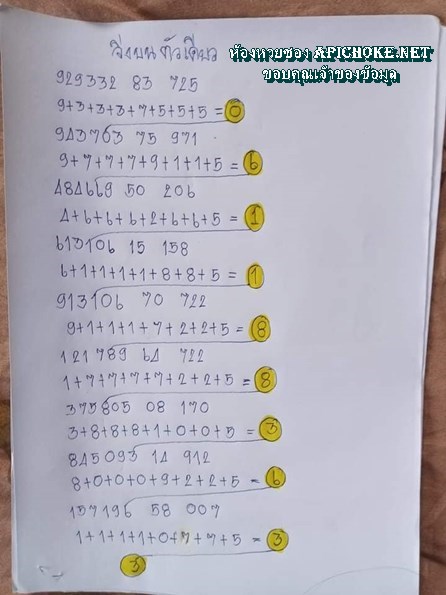 วิ่งบน ตัวเดียว
ห้องหวยซอง APICHOKE.NET
ขอบคุณเจ้าของข้อมูล
929332 83 725
9+3+3+3+7+5+5+5 = 0
943763 75 971
9+7+7+7+9+1+1+5 = 6
484669 50 206
4+6+6+6+2+6+6+5 = 1
613106 15 158
6+1+1+1+1+8+8+5 = 1
913106 70 722
9+1+1+1+7+2+2+5 = 8
121789 64 722
1+7+7+7+7+2+2+5 = 8
375805 08 170
3+8+8+8+1+0+0+5 = 3
845093 14 912
8+0+0+0+9+2+2+5 = 6
157196 58 007
1+1+1+1+0+7+7+5 = 3
3